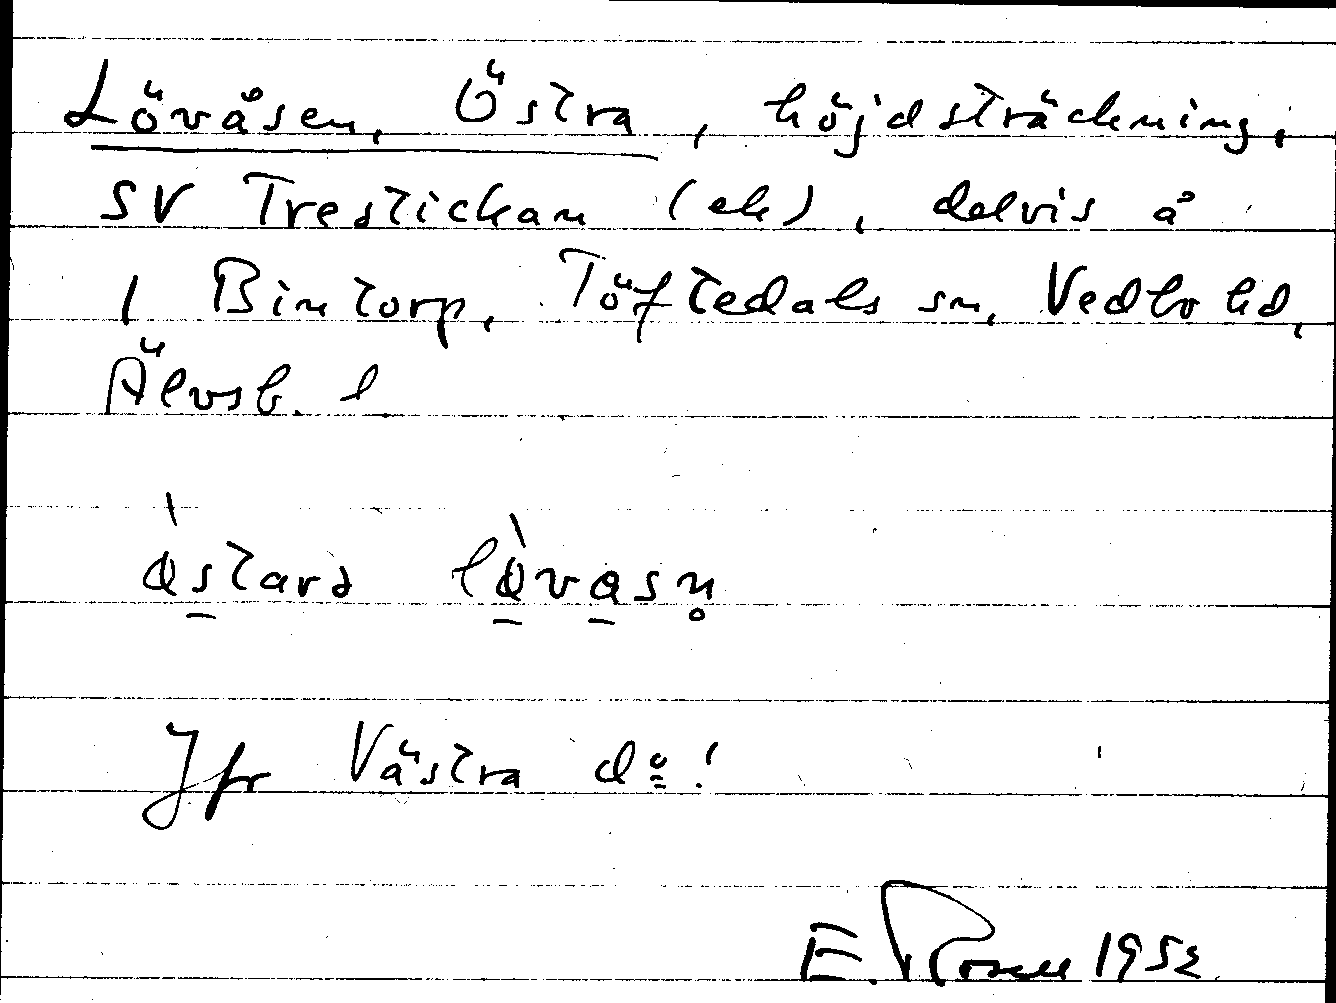 Lövåsen, Östra, höjdsträckning,
SV Trestickan (ek), delvis å
1 Bintorp, Töftedals sn, Vedbo hd,
Älvsb. l
Jfr Västra do!
E. Rosell 1952